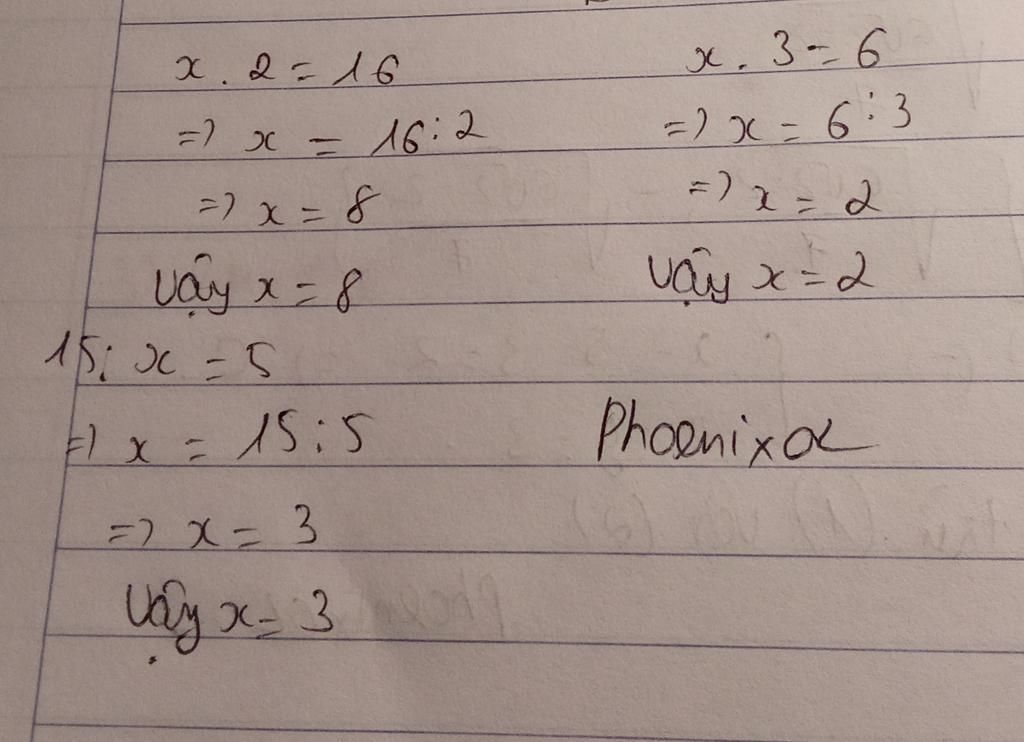 x . 2 = 16
=> x = 16 : 2
=> x = 8
Vậy x = 8
x . 3 = 6
=> x = 6 : 3
=> x = 2
Vậy x = 2
15 : x = 5
=> x = 15 : 5
=> x = 3
Vậy x = 3
Phoenixα